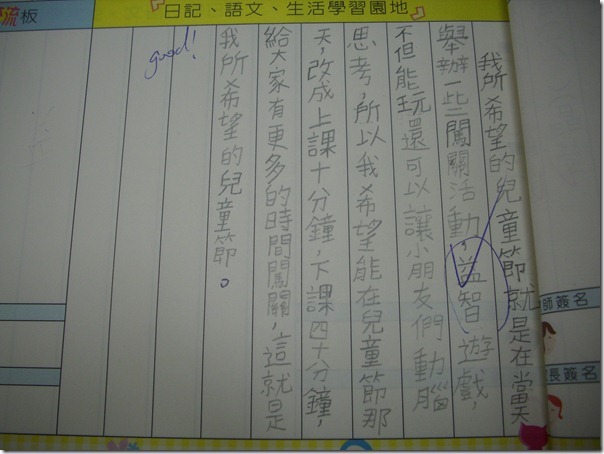 流板
日記、語文、生活學習園地
我所希望的兒童節就是在當天
舉辦一些闖關活動,益智遊戲,
不但能玩還可以讓小朋友們動腦
思考,所以我希望能在兒童節那
天,改成上課十分鐘,下課四十分鐘,
給大家有更多的時間闖關,這就是
我所希望的兒童節。
good!
師簽名
長簽名